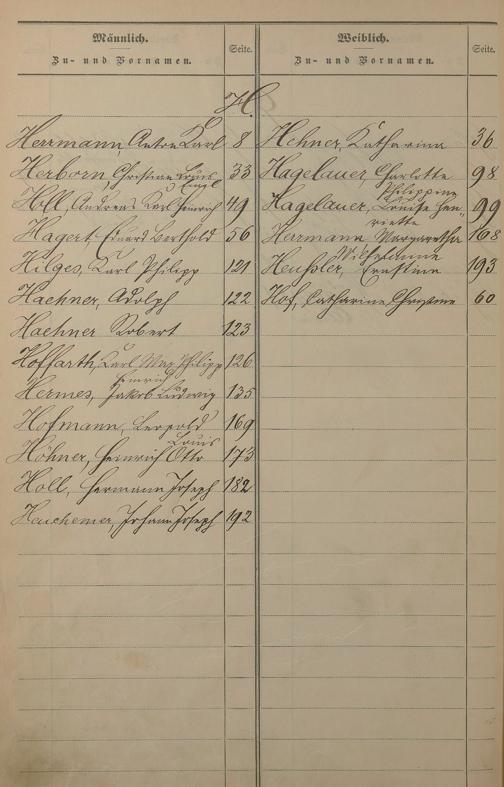 Männlich.
Zu- und Vornamen.
Seite.
Weiblich.
Zu- und Vornamen.
Seite.
H.
Herrmann, Anton Karl 8
Herborn, Christian Louis Emil 33
Höll, Andreas Karl Heinrich 49
Hagert, Eduard Berthold 56
Hilges, Karl Philipp 121
Haehner, Adolph 122
Haehner Robert 123
Hoffarth, Karl Max Philipp 126
Hermes, Jakob Heinrich Ludwig 135
Hofmann, Leopold 169
Höhner, Heinrich Otto Louis 173
Holl, Hermann Joseph 182
Heuchemer, Johann Joseph 192
Hehner, Katharina 36
Hagelauer, Charlotte Philippine 98
Hagelauer, Louise Hen-
riette 99
Herrmann Margaretha 168
Heußler, Wilhelmine Ernstine 193
Hof, Catharine Christine 60